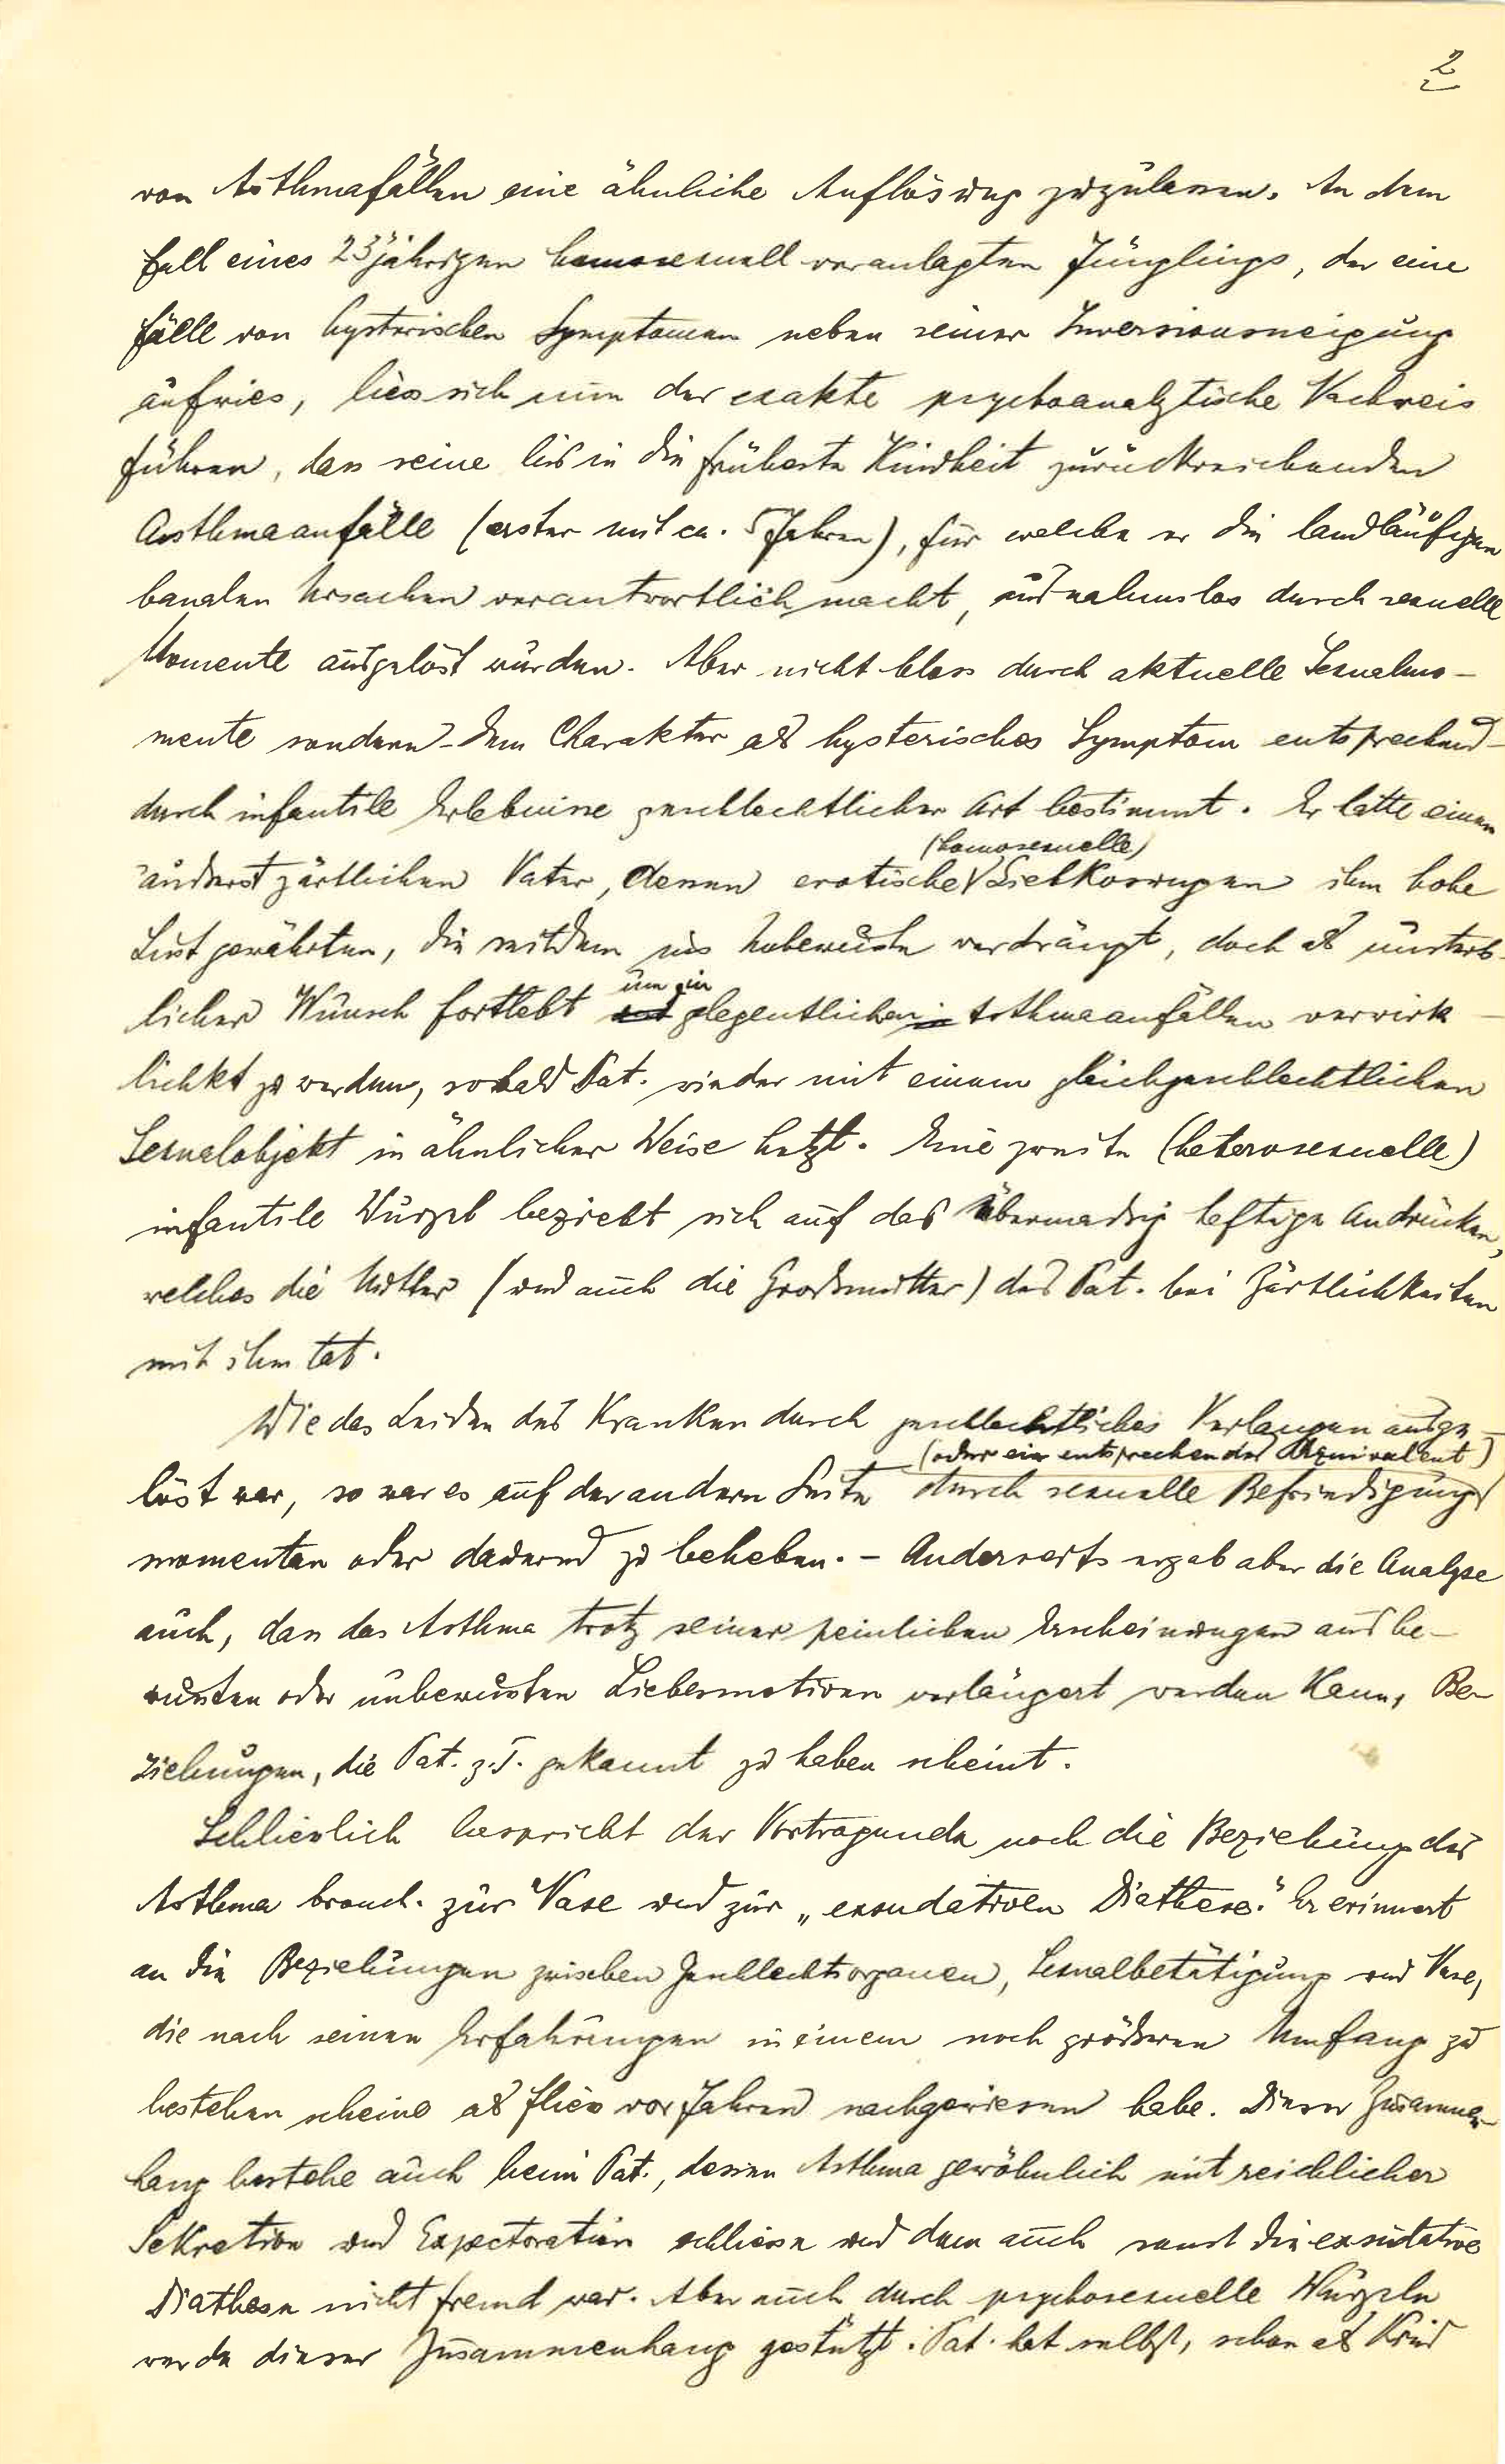 2
von Asthmafällen eine ähnliche Auflösung zuzulassen. An dem
Fall eines 23jährigen homosexuell veranlagten Jünglings, der eine
Fülle von hysterischen Symptomen neben seiner Inversionsneigung
aufwies, liess sich nun der exakte psychoanalytische Nachweis
führen, dass seine bis in die früheste Kindheit zurückreichenden
Asthmaanfälle (erster mit ca. 5 Jahren), für welche er die landläufigen
banalen Ursachen verantwortlich macht, ausnahmslos durch sexuelle
Momente ausgelöst wurden. Aber nicht bloss durch aktuelle Sexualmo-
mente sondern - dem Charakter als hysterisches Symptom entsprechend -
durch infantile Erlebnisse geschlechtlicher Art bestimmt. Er hatte einen
(homosexuelle)
äusserst zärtlichen Vater, dessen erotische Liebkosungen ihm hohe
Lust gewährten, die seitdem ins Unbewusste verdrängt, doch als unsterb-
um in
licher Wunsch fortlebt gelegentlichen Asthmaanfällen verwirk-
lichkt zu werden, sobald Pat. wieder mit einem gleichgeschlechtlichen
Sexualobjekt in ähnlicher Weise Eine zweite (heterosexuelle)
infantile Wurzel bezieht sich auf das übermässig heftige Andrücken,
welches die Mutter (und auch die Grossmutter) des Pat. bei Zärtlichkeiten
mit ihm tat.
Wie das Leiden des Kranken durch geschlechtliches Verlangen ausge-
(oder ein entsprechendes Aequivalent)
löst war, so war es auf der andern Seite durch sexuelle Befriedigung
momentan oder dauernd zu beheben. - Anderseits ergab aber die Analyse
auch, dass das Asthma trotz seiner peinlichen Erscheinungen aus be-
wussten oder unbewussten Liebesmotiven verlängert werden kann, Be-
ziehungen, die Pat. z.T. gekannt zu haben scheint.
Schliesslich bespricht der Vortragende noch die Beziehung des
Asthma bronch. zur Nase und zur „exsudativen Diathese." Er erinnert
an die Beziehungen zwischen Geschlechtsorganen, Sexualbetätigung und Nase,
die nach seinen Erfahrungen in einem noch grösseren Umfang zu
bestehen scheine als Fliess vor Jahren nachgewiesen habe. Dieser Zusammen-
hang bestehe auch beim Pat., dessen Asthma gewöhnlich mit reichlicher
Sekretion und Expectoration schliesse und dem auch sonst die exsudative
Diathese nicht fremd war. Aber auch durch psychosexuelle Wurzeln
werde dieser Zusammenhang gestützt: Pat. hat selbst, schon als Kind